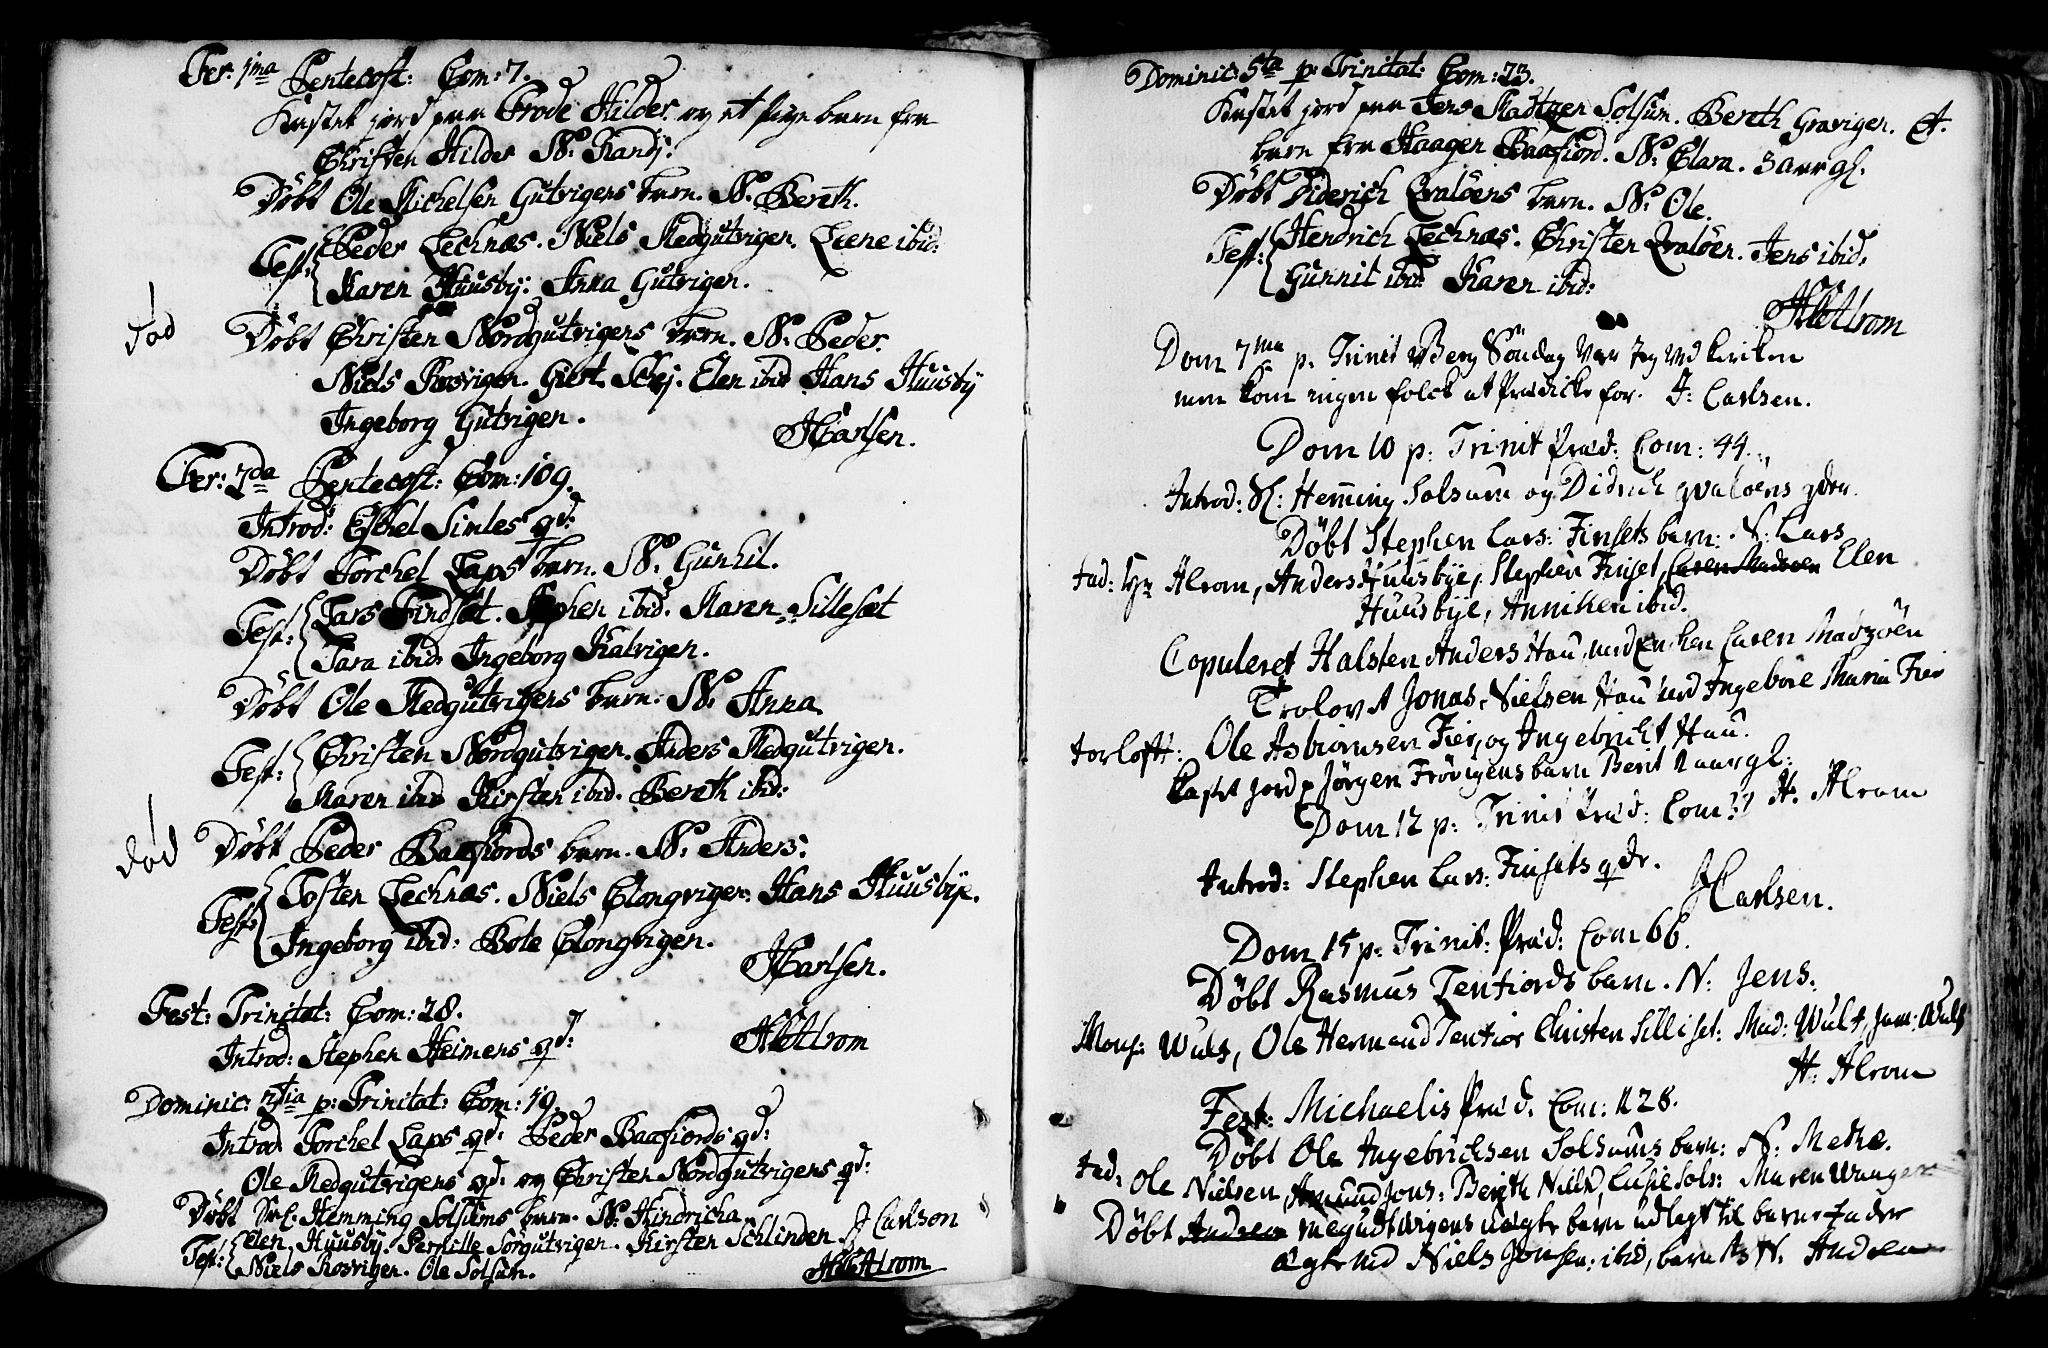 Fer: 1ma Pentecost: Com: 7.
Kastet jord paa Trode Hilder og et pige barn fra
Christen Hilder N: Randj:
Döbt Ole Michelsen Gutvigens barn. N: Bereth.
Test: Peder Lechnæs. Niels Medgutvigen. Leene ibid:
Karen Huusby: Anna Gutvigen.
död
Döbt Christen Nordgutvigens barn. N: Peder.
Niels Rosvigen. Giert Schej. Elen ibid Hans Huusby
Ingeborg Gutvigen.
JCarlsen.
Fer: 2da Pentecost: Com: 109.
Introd: Eschel Simles qd:
Döbt Torchel Laps barn. N: Gunhil.
Test: Lars Findset. Stephen ibid. Karen Sillesæt
Tara ibid. Ingeborg Kalvigen.
Döbt Ole Medgutvigens barn. N: Anna.
Test: Christen Nordgutvigen. Anders Medgutvigen.
Karen ibid Kirsten ibid. Bereth ibid:
död
Döbt Peder Baafiords barn. N: Anders:
Test: Tosten Lechnæs. Niels Clongvigen. Hans Huusbye.
Ingeborg ibid: Bole Clongvigen.
JCarlsen.
Fest: Trinitat: Com: 28.
Introd: Stephen Heimens qd:
HAlrom
Dominic: 3tia p: Trinitat: Com: 19.
Introd. Torchel Laps qd: Peder Baafiords qd:
Ole Medgutvigens qd: og Christen Nordgutvigens qd:
Döbt Hemming Solsems barn. N: Hindricha
Test: Elen Huusby. Pernille Sörgutvigen. Kirsten Schlinden
J Carlson
Niels Rosvigen. Ole Solsum.
HAlrom
Dominic: 5ta p: Trinitat: Com: 23.
Kastet jord paa Jens Madtzen Solsum. Bereth Gravigen. Et.
barn fra Haagen Baafiord. N: Clara. 3 aar gl.
Döbt Diderich Qvalöens barn. N: Ole.
Test: Hendrich Lechnæs. Christen Qvalöen. Jens ibid.
Gunnil ibid: Karen ibid:
HAlrom
Dom 7ma p: Trinit Berg Söndag Var Jeg ved kirken
men kom ingen folck at Prædicke for. J: Carlsen.
Dom 10 p: Trinit Præd: Com: 44.
Introd: Sl: Hemming Solsum og Didrich qvaloens qdr.
Döbt Stephen Lars: Finsets barn: N: Lars
fad: hr Alrom, Anders Huusbye, Stephen Finset, Elen
Huusbye, Anniken ibid.
Copuleret Halsten Anders Hau med Enken Caren Madzöen
Trolovet Jonas Nielsen Hau med Ingebore Maria Fier
forloft: Ole Asbiornsen Fier, og Ingebricht Hau.
Kastet jord p Jörgen Frövigens barn Berit 2 aar gl:
Dom 12 p: Trinit Præd: Com 37 H. Alrom
Introd: Stephen Lars: Finsets qdr.
JCarlsen.
Dom 15 p: Trinit: Præd: Com 66.
Döbt Rasmus Tentiords barn. N: Jens.
Mons: Wuls, Ole Hermand Tentior Christen Silliset: Mad: Wuls, Jom: Wuls
H: Alrom
Fest: Michaelis Præd. Com: 128.
Döbt Ole Ingebrichsen Solsums barn: N: Methe.
fad: Ole Nielsen, Amund Jons: Bergth Niels, Lusie Sols: Maren Wangen
Döbt Andrea megudtvigens uægte barn udlagt til barne fader
ægte med Niels Jonsen: ibid, barnets N. Andrea